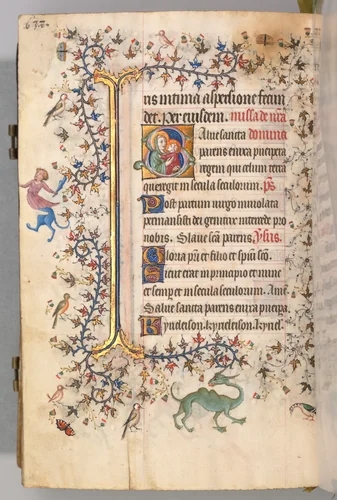 ris intima aspersione fecun
det. Per eundem. missa de nra
Salve sancta domina
parens enixa puerpera
regem qui celum terra
que regit in secula seculorum. ps
Post partum virgo inviolata
permansisti dei genitrix intercede pro
nobis. Salve scā parens. Ysus.
Gloria pri et filio et spiri scō.
Sicut erat in principio et nunc
et semper et in secula seculorum. Amē.
Salve sancta parens enixa puerpa.
Kyrieleison. kyrieleison. kyriel.